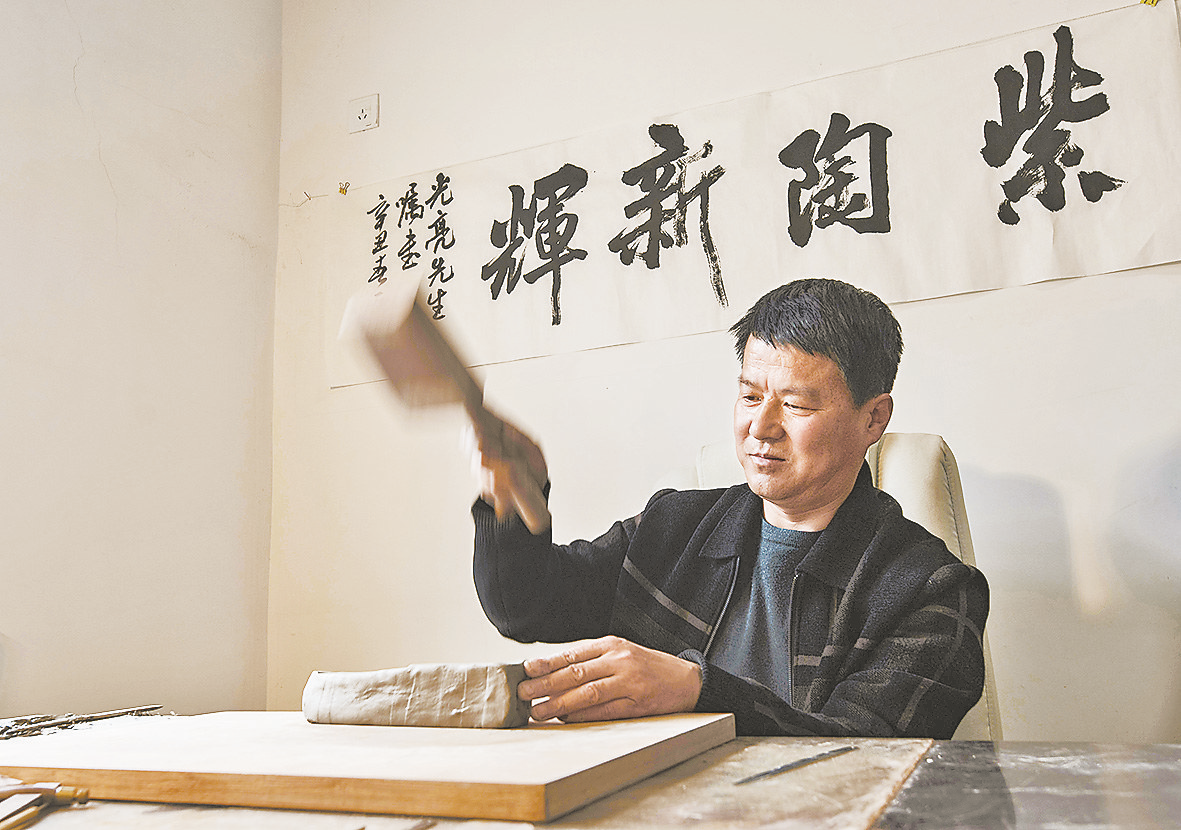 紫陶新輝
光亮先生
嘱书
辛丑春